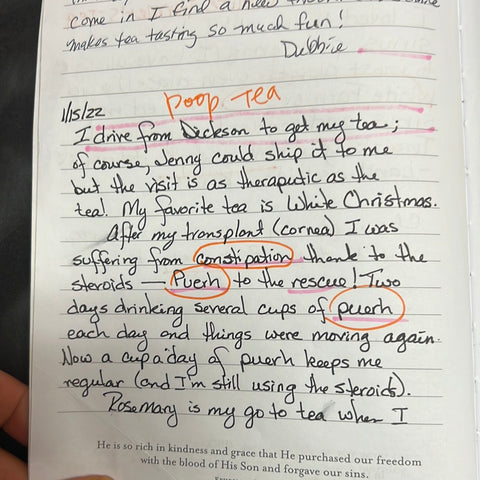 come in I find a new
makes tea tasting so much fun!
Debbie
poop tea
1/15/22
I drive from Dickson to get my tea;
of course, Jenny could ship it to me
but the visit is as therapeutic as the
tea! My favorite tea is White Christmas.
After my transplant (cornea) I was
suffering from constipation thank to the
steroids — Puerh to the rescue! Two
days drinking several cups of puerh
each day and things were moving again.
Now a cup a day of puerh keeps me
regular (and I'm still using the steroids).
Rosemary is my go to tea when I
He is so rich in kindness and grace that He purchased our freedom
with the blood of His Son and forgave our sins.